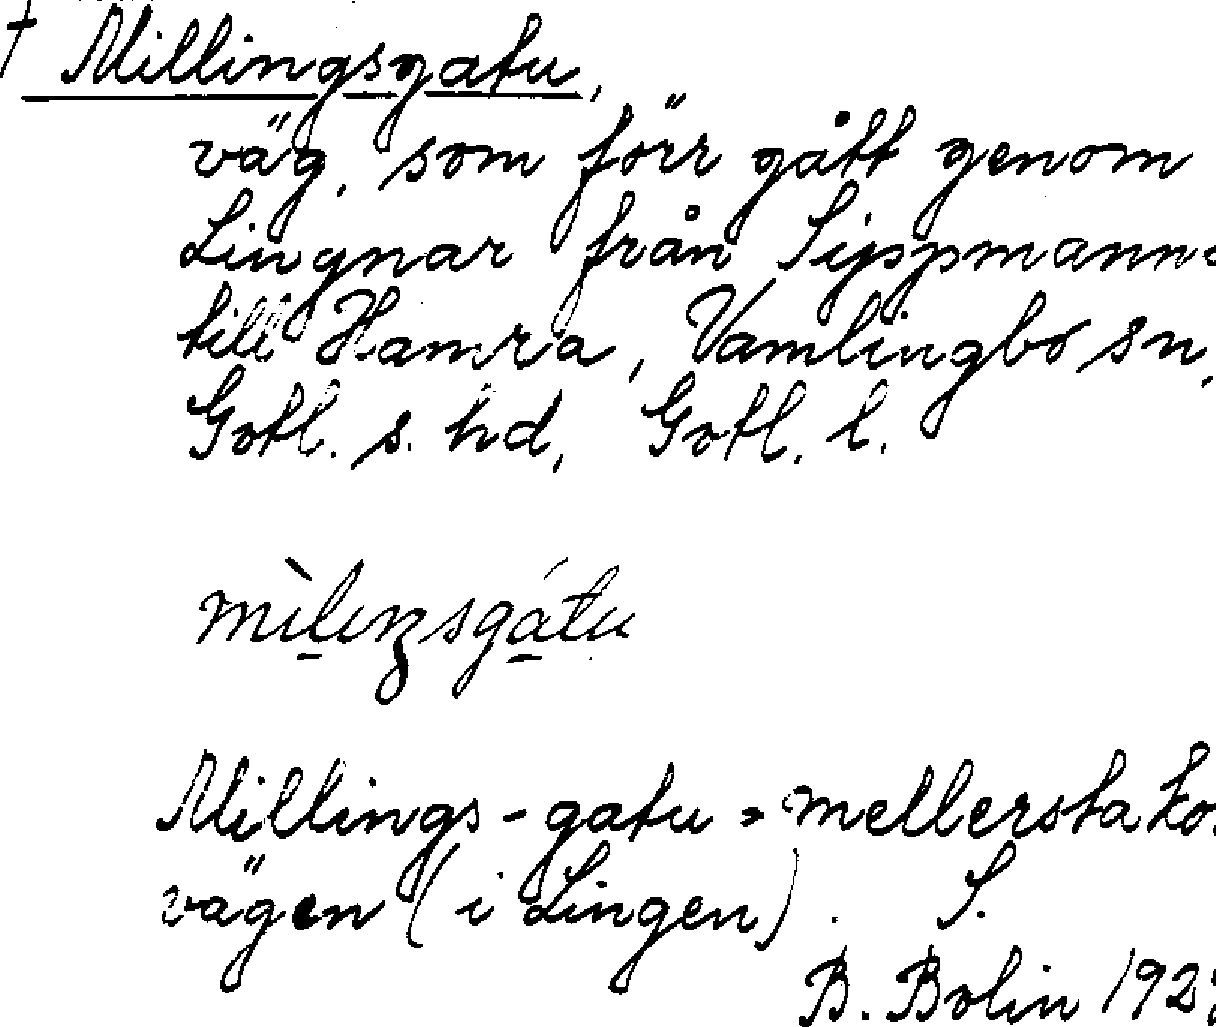 † Millingsgatu,
väg, som förr gått genom
Lingnar från Sippmanns
till Hamra, Vamlingbo sn,
Gotl. s. hd, Gotl. l.
Millings-gatu = mellersta ko.
vägen (i Lingen). S.
B. Bolin 192